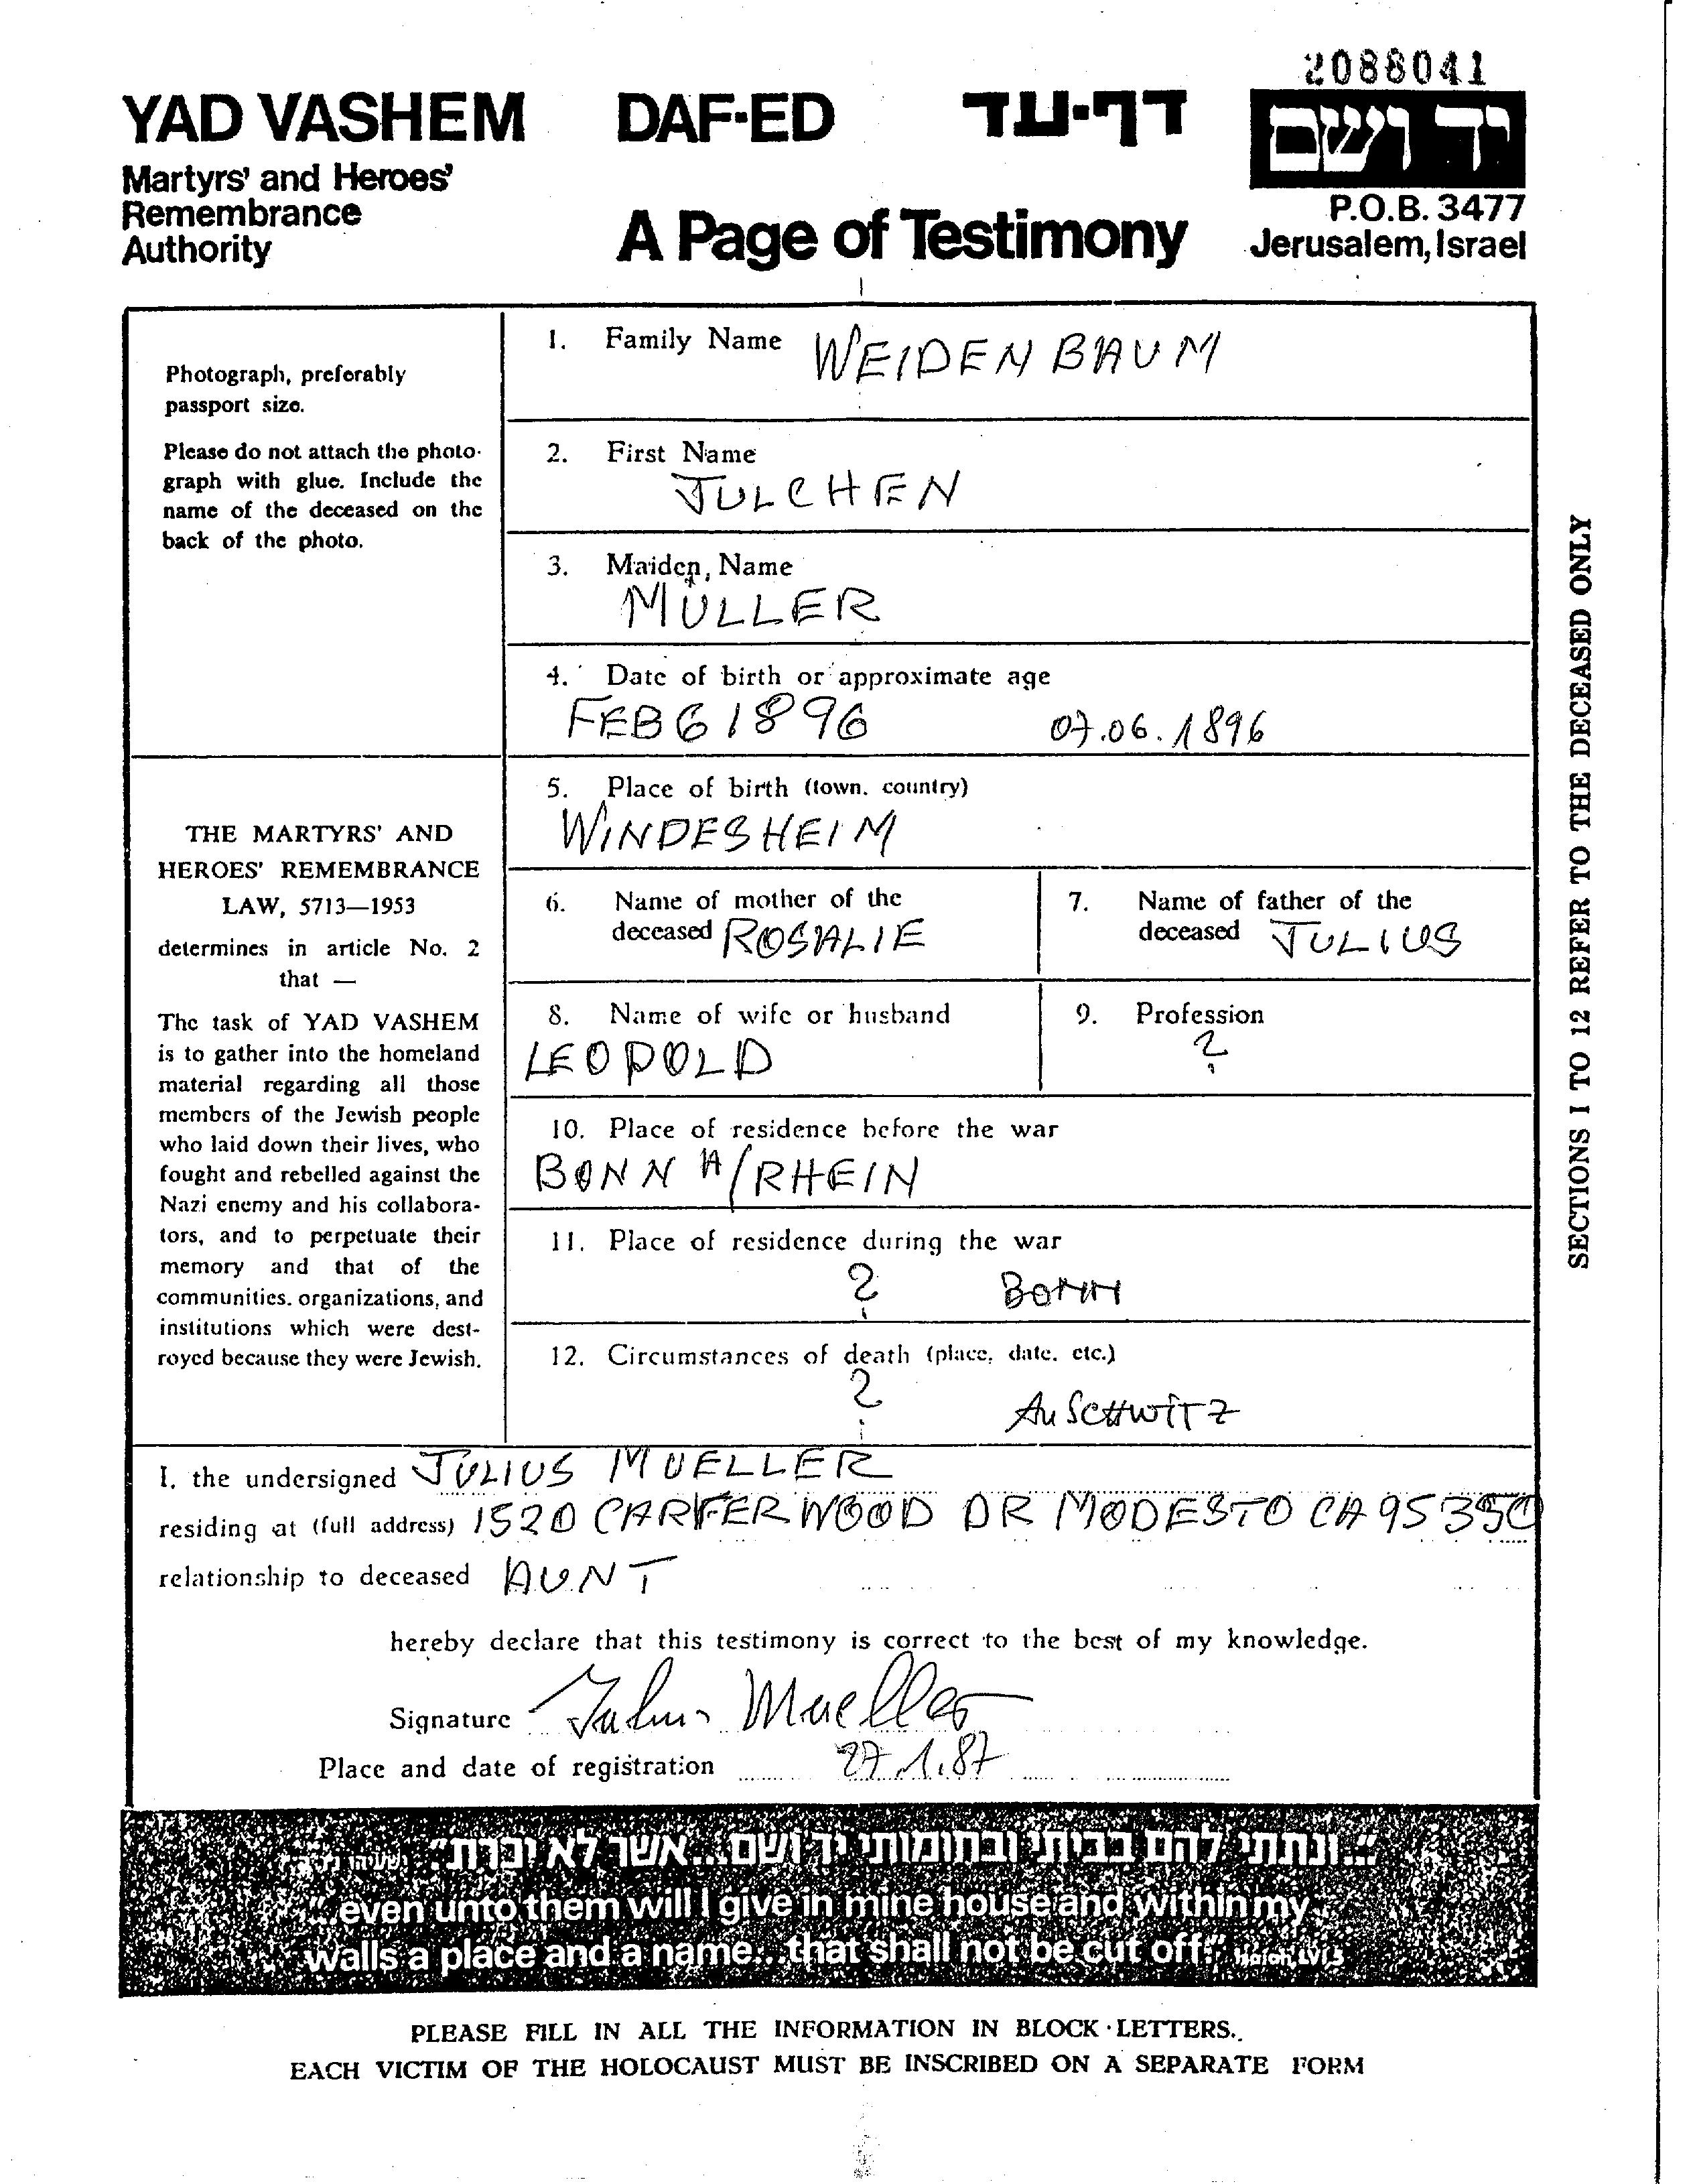 2088041
YAD VASHEM DAF-ED דף-עד יד ושם
Martyrs' and Heroes'
Remembrance
Authority
A Page of Testimony
P.O.B. 3477
Jerusalem, Israel
Photograph, preferably
passport size.
Please do not attach the photo-
graph with glue. Include the
name of the deceased on the
back of the photo.
THE MARTYRS' AND
HEROES' REMEMBRANCE
LAW, 5713—1953
determines in article No. 2
that —
The task of YAD VASHEM
is to gather into the homeland
material regarding all those
members of the Jewish people
who laid down their lives, who
fought and rebelled against the
Nazi enemy and his collabora-
tors, and to perpetuate their
memory and that of the
communities, organizations, and
institutions which were dest-
royed because they were Jewish.
1. Family Name WEIDENBAUM
2. First Name
JULCHEN
3. Maiden Name
MÜLLER
4. Date of birth or approximate age
FEB 6 1896 07.06.1896
5. Place of birth (town, country)
WINDESHEIM
6. Name of mother of the
deceased ROSALIE
7. Name of father of the
deceased JULIUS
8. Name of wife or husband
LEOPOLD
9. Profession
?
10. Place of residence before the war
BONN A/RHEIN
11. Place of residence during the war
? BONN
12. Circumstances of death (place, date, etc.)
? AUSCHWITZ
SECTIONS 1 TO 12 REFER TO THE DECEASED ONLY
I, the undersigned JULIUS MUELLER
residing at (full address) 1520 DR MODESTO CA 95350
relationship to deceased AUNT
hereby declare that this testimony is correct to the best of my knowledge.
Signature Julius Mueller
Place and date of registration 27.1.87
"...ונתתי להם בביתי ובחומותי יד ושם...אשר לא יכרת"
"...even unto them will I give in mine house and within my
walls a place and a name...that shall not be cut off." Isaiah, LVI, 5
PLEASE FILL IN ALL THE INFORMATION IN BLOCK LETTERS.
EACH VICTIM OF THE HOLOCAUST MUST BE INSCRIBED ON A SEPARATE FORM